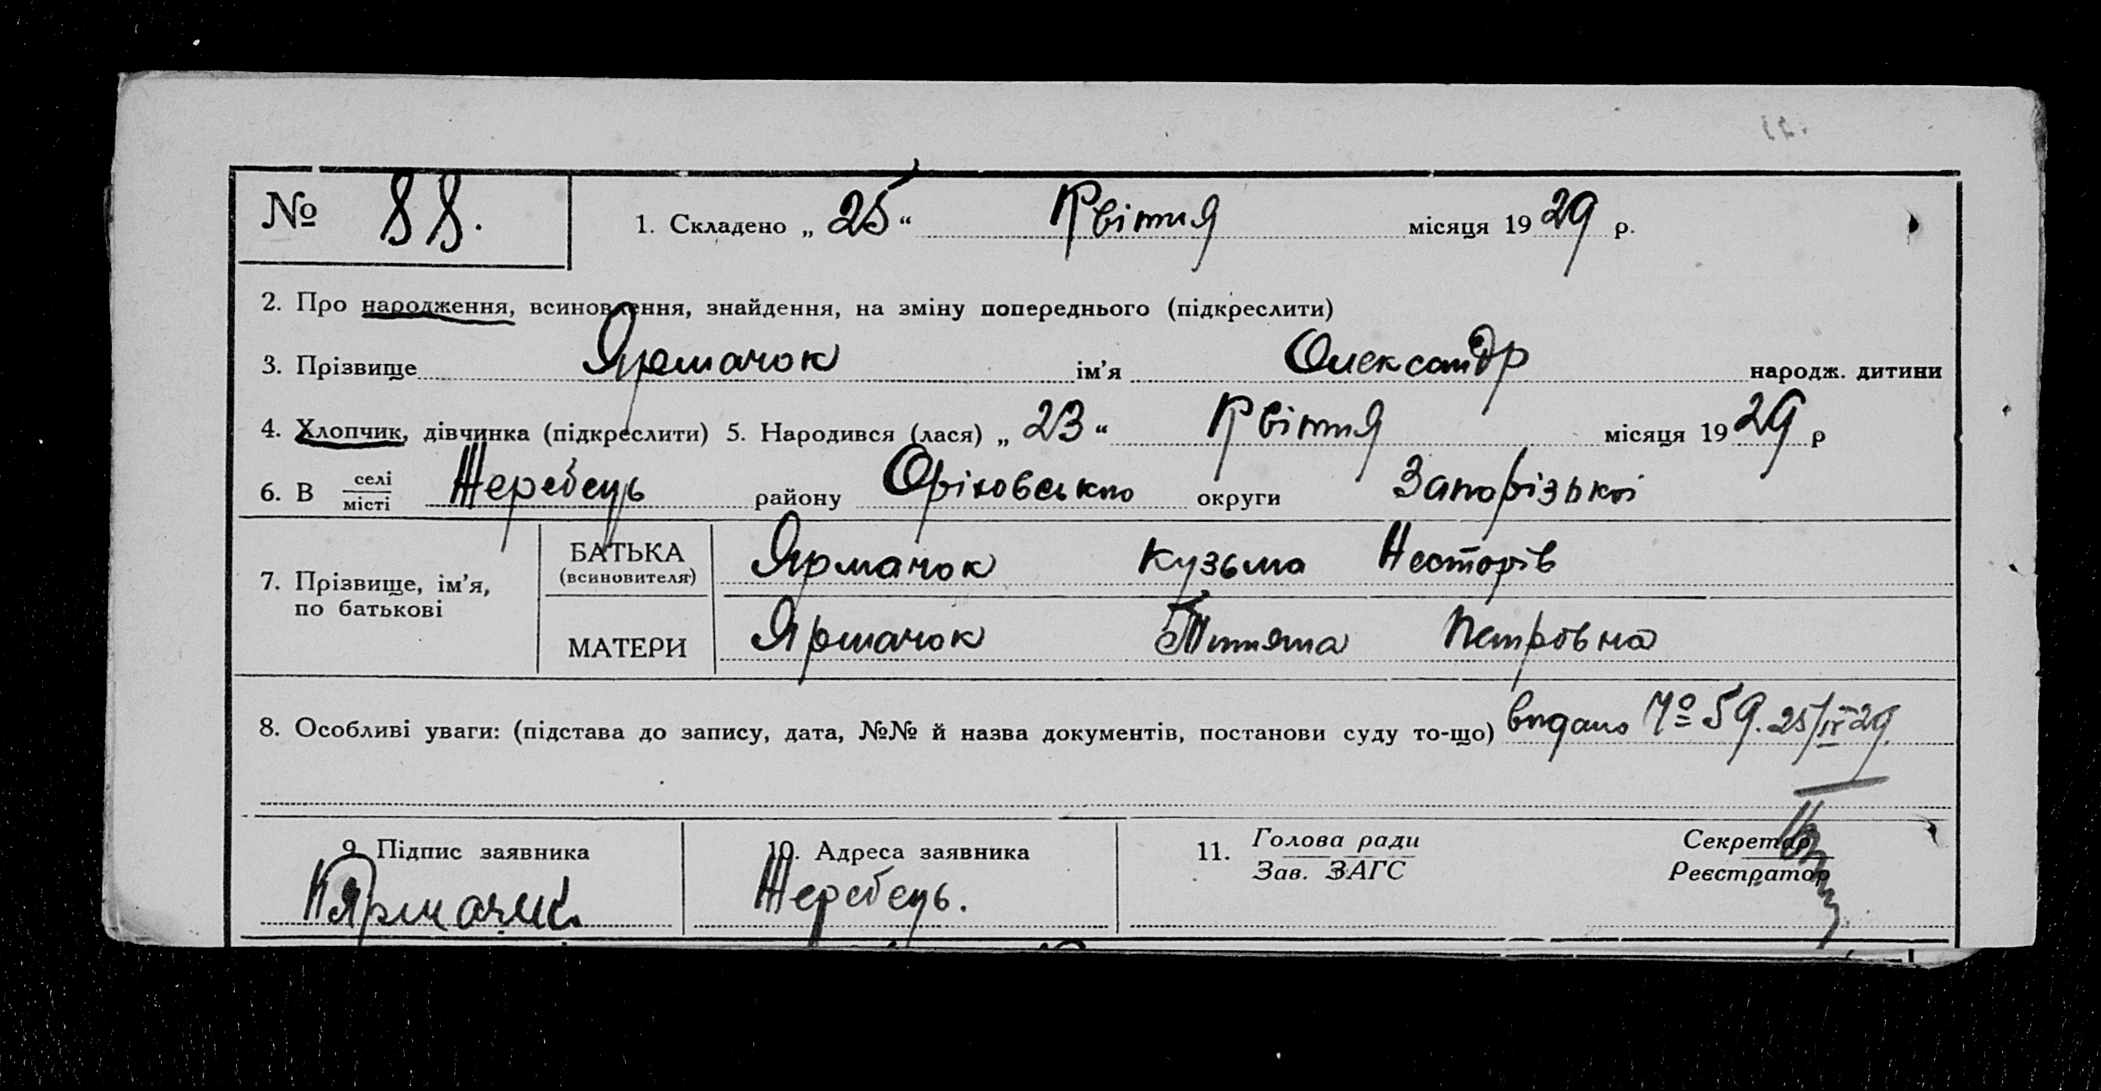 № 88. 1. Складено „ 25 “ Квітня місяця 1929 р.
2. Про народження, всиновлення, знайдення, на зміну попереднього (підкреслити)
3. Прізвище Ярмачок ім’я Олександр народж. дитини
4. Хлопчик, дівчинка (підкреслити) 5. Народився (лася) „ 23 “ Квітня місяця 1929 р
6. В селі
місті Жеребець району Оріховського округи Запорізької
7. Прізвище, ім’я,
по батькові
БАТЬКА
(всиновителя) Ярмачок Кузьма Несторів
МАТЕРИ Ярмачок Петровна
8. Особливі уваги: (підстава до запису, дата, №№ й назва документів, постанови суду то-що) видано № 59. 25/IV 29
9. Підпис заявника 10. Адреса заявника 11. Голова ради Секретар
Зав. ЗАГС Реєстратор
Жеребець.